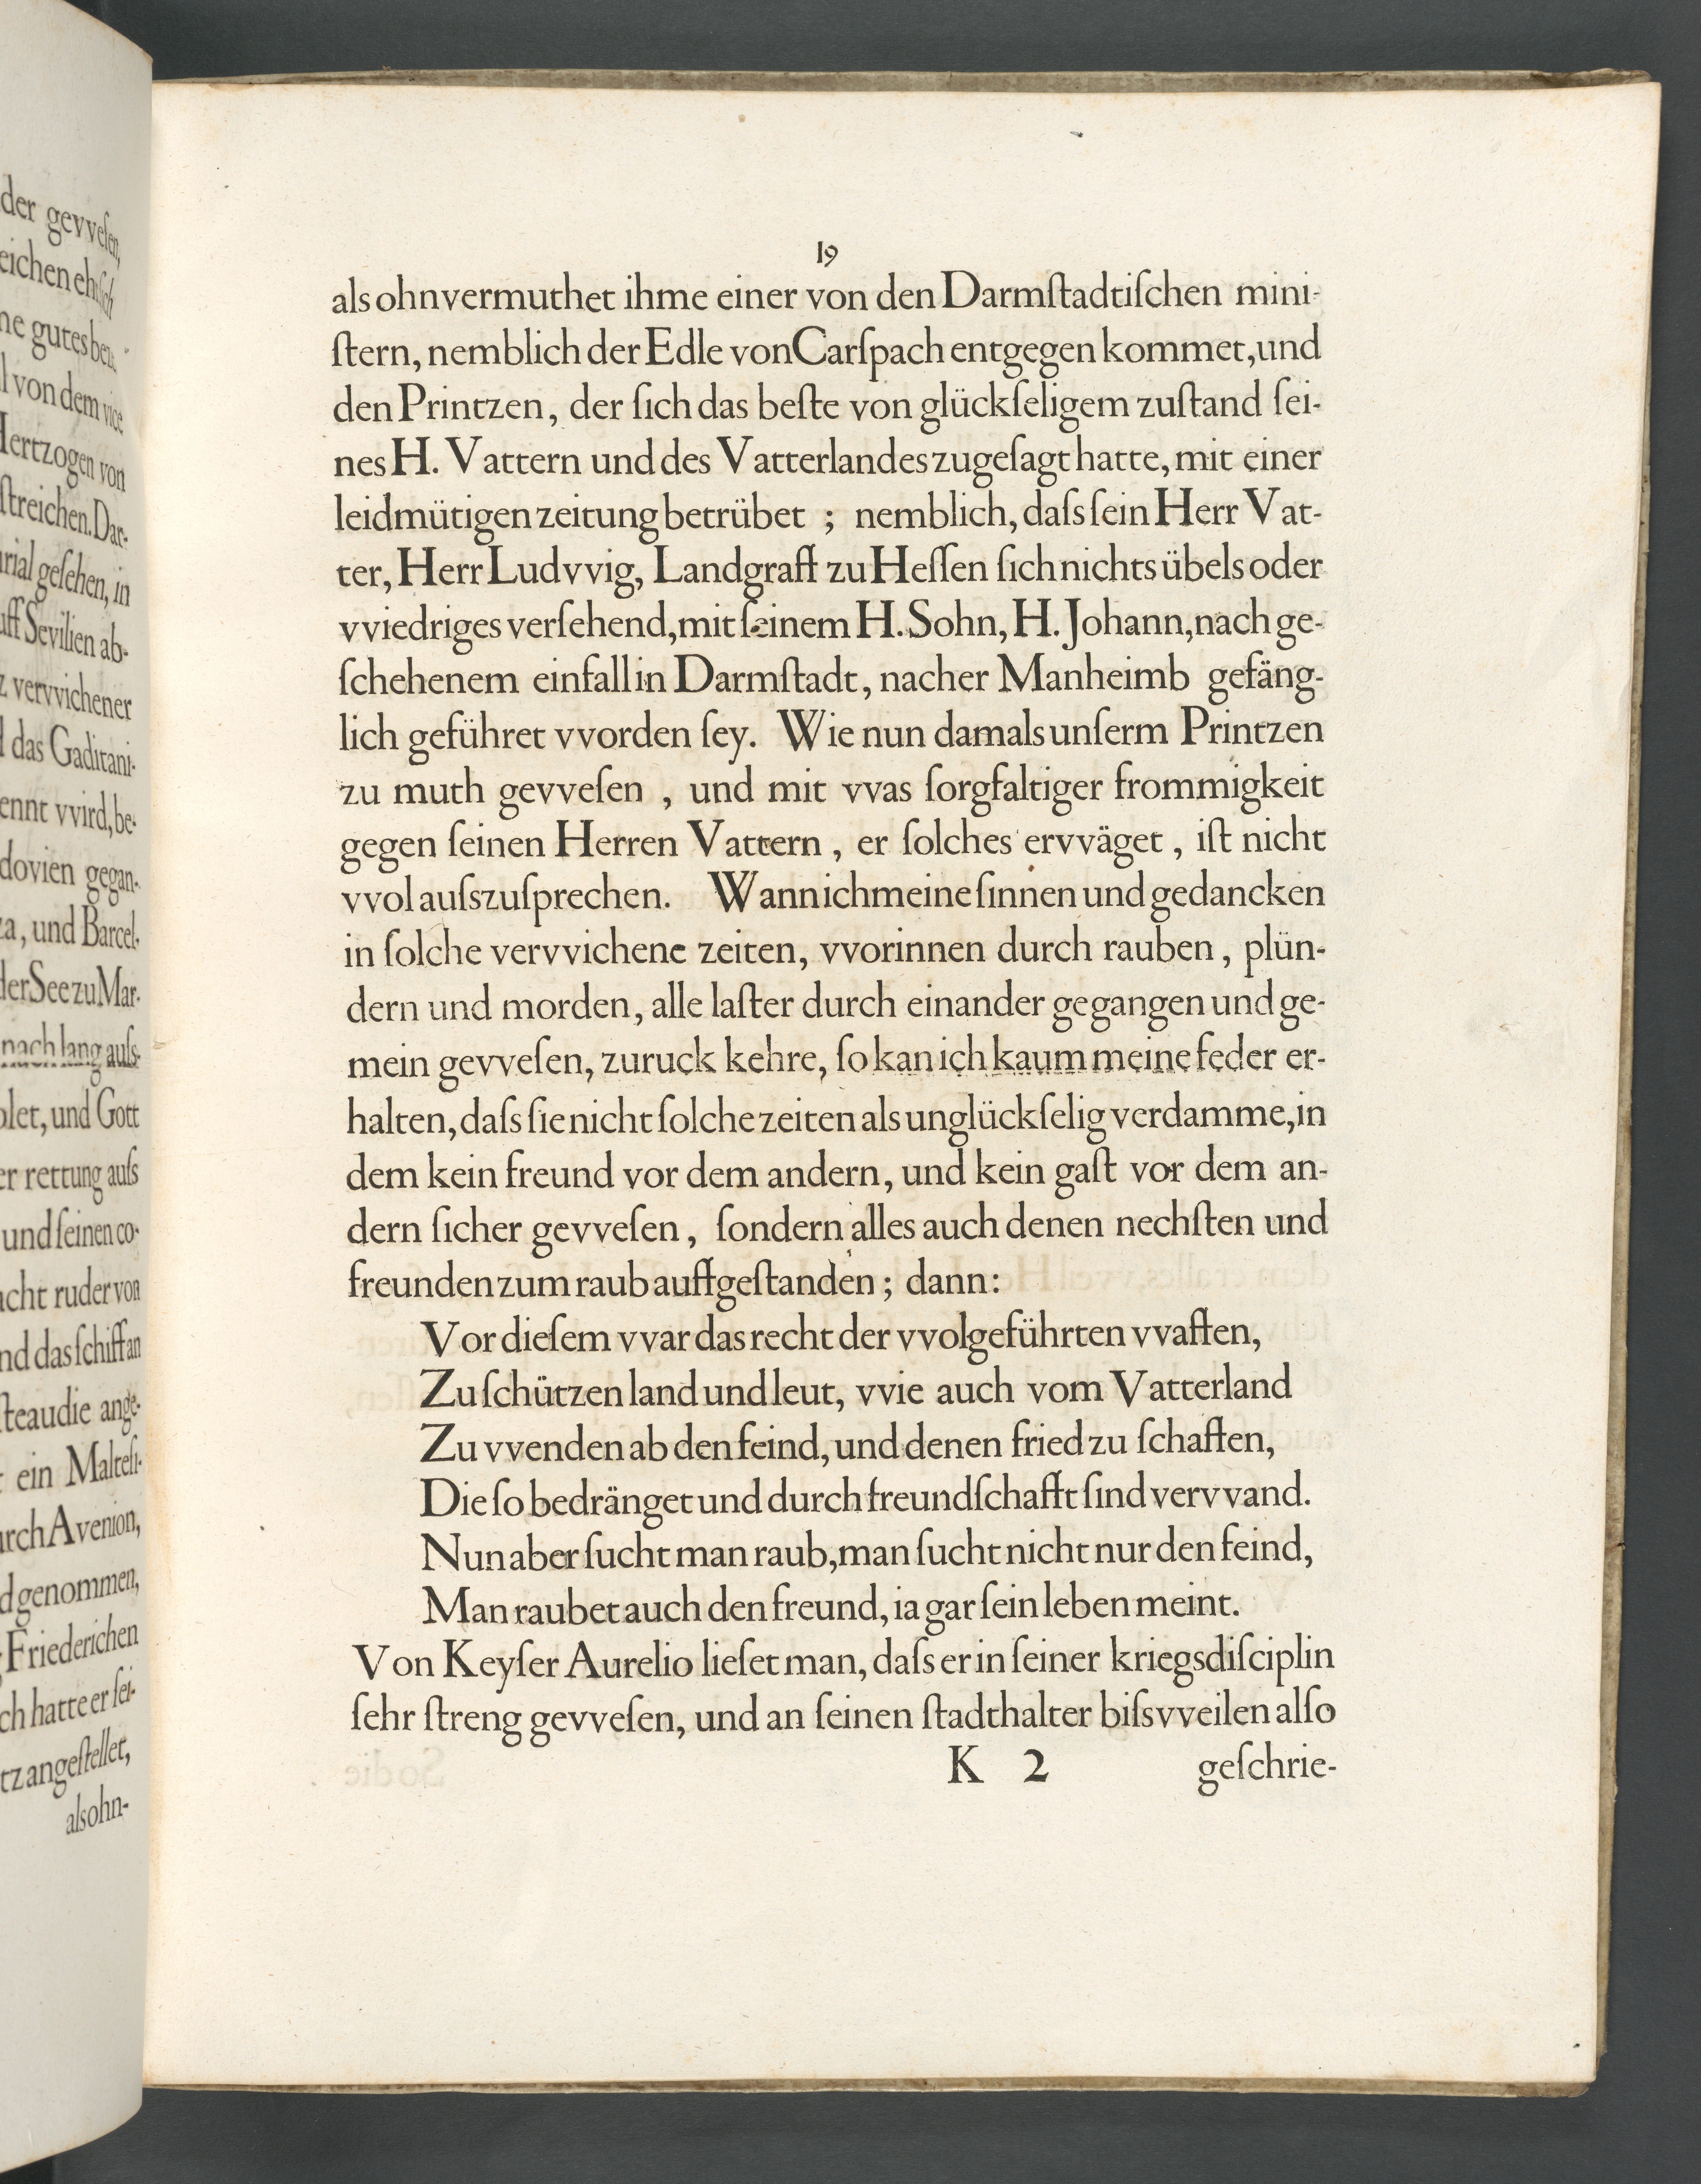 der gevveſen,
eichen ehrlich
ne gutes
l von dem vice
Hertzogen von
ſtreichen. Dar-
rial geſehen, in
uff Sevilien ab-
z vervvichener
d das Gaditani-
ennt vvird, be-
dovien gegan-
za, und Barcel-
der See zu Mar-
nach lang auſs-
olet, und Gott
er rettung auſs
und ſeinen co-
acht ruder von
nd das ſchiff an
ſteaudie ange-
ein Malteſi-
urch Avenion,
d genommen,
Friederichen
ch hatte er ſei-
tz angeſtellet,
als ohn-
19
als ohnvermuthet ihme einer von den Darmſtadtiſchen mini-
ſtern, nemblich der Edle von Carſpach entgegen kommet, und
den Printzen, der ſich das beſte von glückſeligem zuſtand ſei-
nes H. Vattern und des Vatterlandes zugeſagt hatte, mit einer
leidmütigen zeitung betrübet ; nemblich, daſs ſein Herr Vat-
ter, Herr Ludvvig, Landgraff zu Heſſen ſich nichts übels oder
vviedriges verſehend, mit ſeinem H. Sohn, H. Johann, nach ge-
ſchehenem einfall in Darmſtadt, nacher Manheimb gefäng-
lich geführet vvorden ſey. Wie nun damals unſerm Printzen
zu muth gevveſen , und mit vvas ſorgfaltiger frommigkeit
gegen ſeinen Herren Vattern , er ſolches ervväget , iſt nicht
vvol auſszuſprechen. Wann ich meine ſinnen und gedancken
in ſolche vervvichene zeiten, vvorinnen durch rauben , plün-
dern und morden, alle laſter durch einander gegangen und ge-
mein gevveſen, zuruck kehre, ſo kan ich kaum meine feder er-
halten, daſs ſie nicht ſolche zeiten als unglückſelig verdamme, in
dem kein freund vor dem andern, und kein gaſt vor dem an-
dern ſicher gevveſen , ſondern alles auch denen nechſten und
freunden zum raub auffgeſtanden ; dann:
Vor dieſem vvar das recht der vvolgeführten vvaffen,
Zu ſchützen land und leut, vvie auch vom Vatterland
Zu vvenden ab den feind, und denen fried zu ſchaffen,
Die ſo bedränget und durch freundſchafft ſind vervvand.
Nun aber ſucht man raub, man ſucht nicht nur den feind,
Man raubet auch den freund, ia gar ſein leben meint.
Von Keyſer Aurelio lieſet man, daſs er in ſeiner kriegsdiſciplin
ſehr ſtreng gevveſen, und an ſeinen ſtadthalter biſsvveilen alſo
K 2 geſchrie-